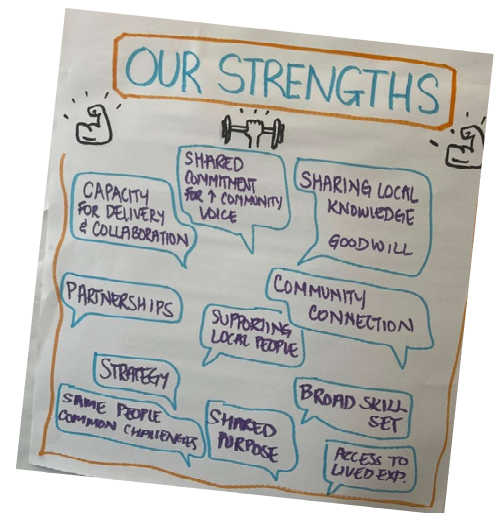 OUR STRENGTHS
CAPACITY
FOR DELIVERY
& COLLABORATION
SHARED
COMMITMENT
FOR ↑ COMMUNITY
VOICE
SHARING LOCAL
KNOWLEDGE
GOODWILL
PARTNERSHIPS
SUPPORTING
LOCAL PEOPLE
COMMUNITY
CONNECTION
STRATEGY
SAME PEOPLE
COMMON CHALLENGES
SHARED
PURPOSE
BROAD SKILL
SET
ACCESS TO
LIVED EXP.